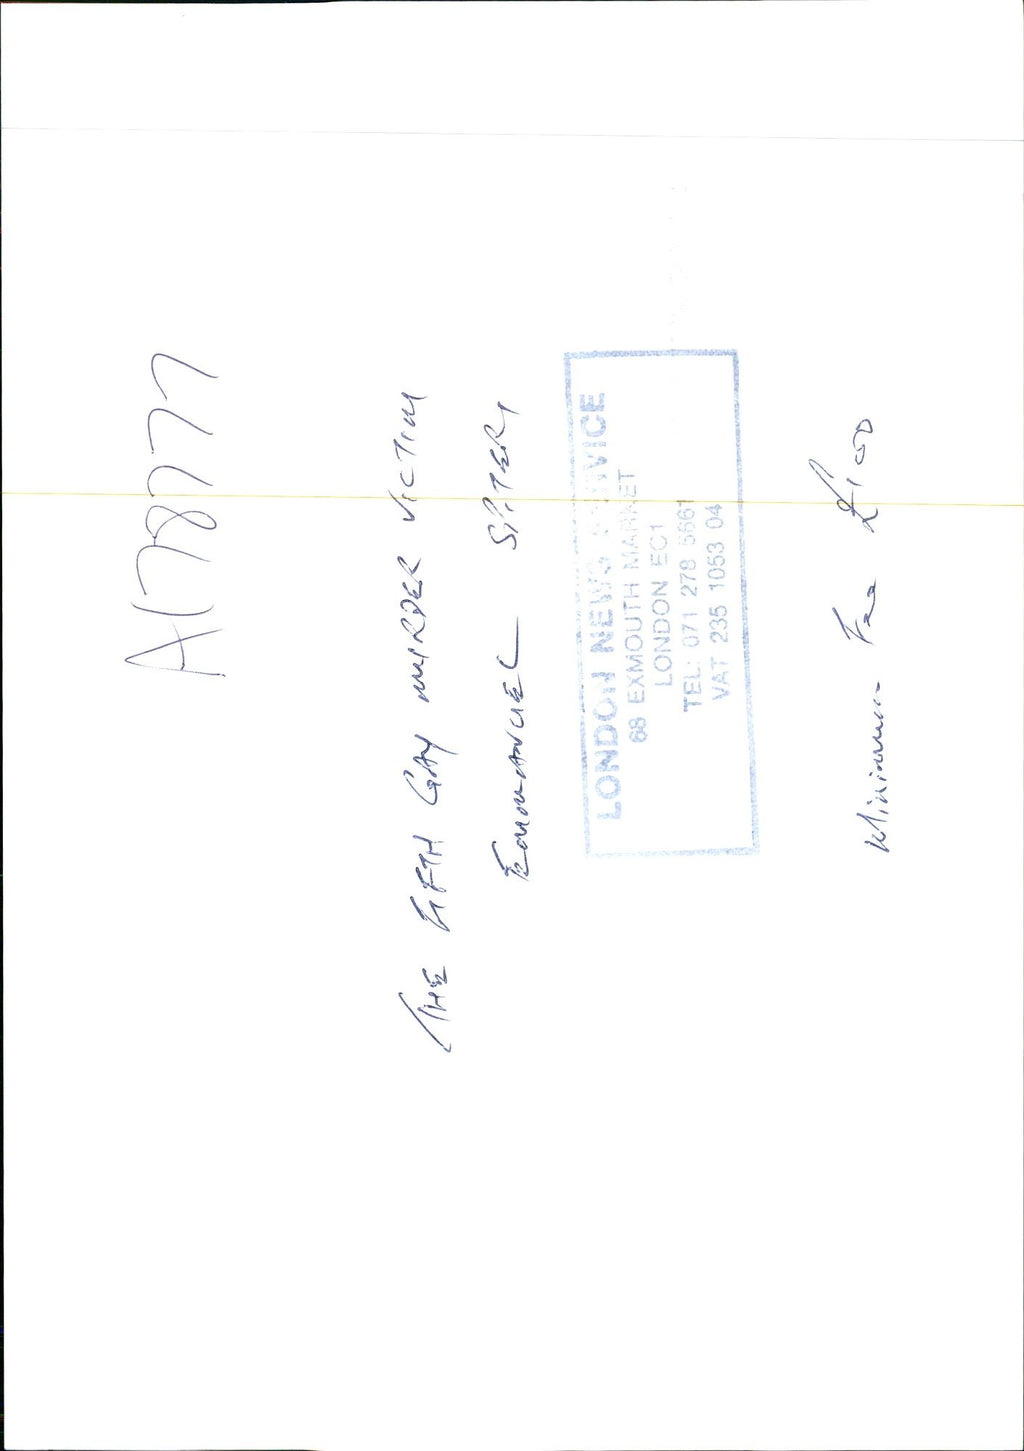 A1787777
THE FIFTH GAY MURDER VICTIM
EMMANUEL SPITERI
LONDON NEWS SERVICE
68 EXMOUTH MARKET
LONDON EC1
TEL: 071 278 5661
VAT 235 1053 04
Minimum Fee £100